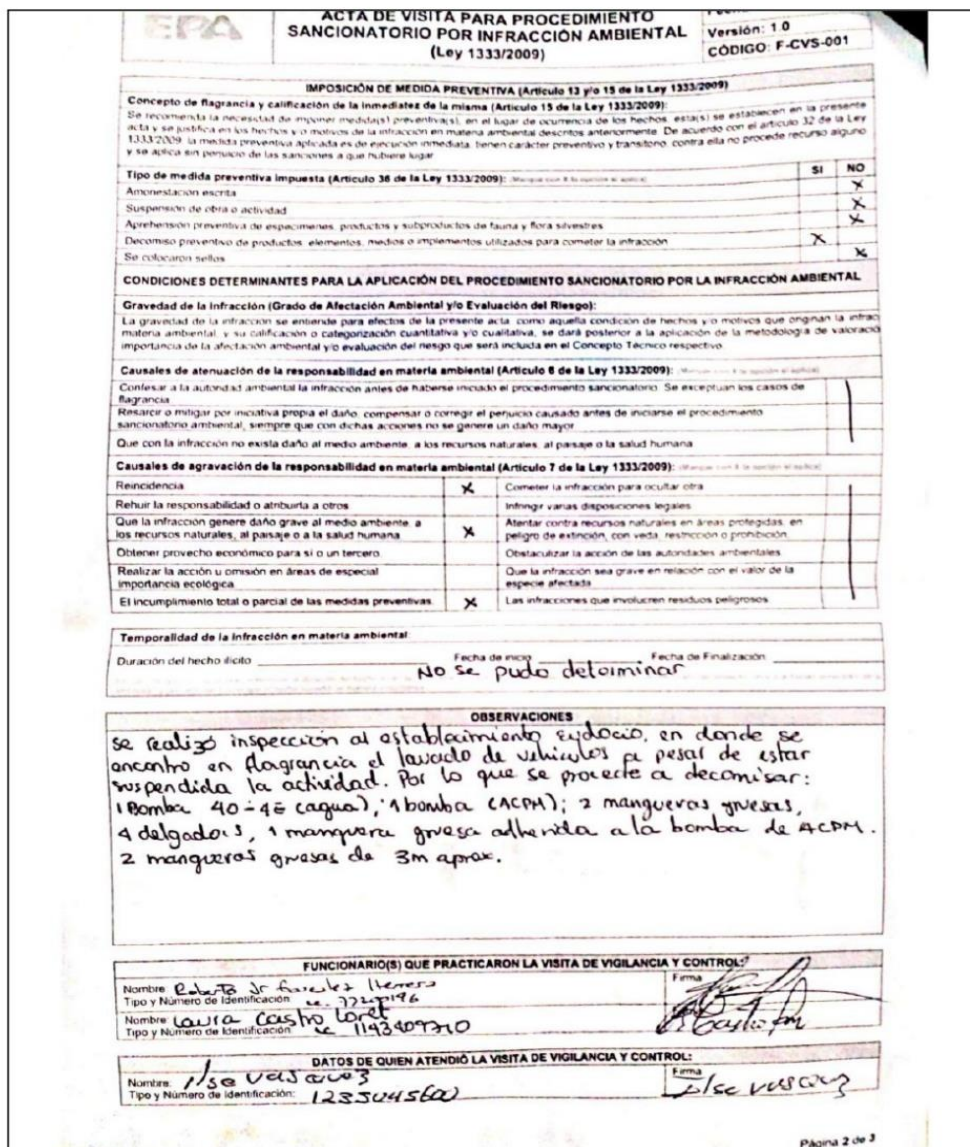 EPA
ACTA DE VISITA PARA PROCEDIMIENTO
SANCIONATORIO POR INFRACCIÓN AMBIENTAL
(Ley 1333/2009)
Versión: 1.0
CÓDIGO: F-CVS-001
IMPOSICIÓN DE MEDIDA PREVENTIVA (Artículo 13 y/o 15 de la Ley 1333/2009)
Concepto de flagrancia y calificación de la inmediatez de la misma (Artículo 15 de la Ley 1333/2009):
Se recomienda la necesidad de imponer medida(s) preventiva(s), en el lugar de ocurrencia de los hechos, esta(s) se establecen en la presente
acta y se justifica en los hechos y/o motivos de la infracción en materia ambiental descritos anteriormente. De acuerdo con el artículo 32 de la Ley
1333/2009, la medida preventiva aplicada es de ejecución inmediata, tienen carácter preventivo y transitorio, contra ella no procede recurso alguno
y se aplica sin perjuicio de las sanciones a que hubiere lugar
Tipo de medida preventiva impuesta (Artículo 36 de la Ley 1333/2009): SI NO
Amonestación escrita X
Suspensión de obra o actividad X
Aprehensión preventiva de especímenes, productos y subproductos de fauna y flora silvestres X
Decomiso preventivo de productos, elementos, medios o implementos utilizados para cometer la infracción X
Se colocaron sellos X
CONDICIONES DETERMINANTES PARA LA APLICACIÓN DEL PROCEDIMIENTO SANCIONATORIO POR LA INFRACCIÓN AMBIENTAL
Gravedad de la Infracción (Grado de Afectación Ambiental y/o Evaluación del Riesgo):
La gravedad de la infracción se entiende para efectos de la presente acta, como aquella condición de hechos y/o motivos que originan la infrac
materia ambiental, y su calificación o categorización cuantitativa y/o cualitativa, se dará posterior a la aplicación de la metodología de valoració
importancia de la afectación ambiental y/o evaluación del riesgo que será incluida en el Concepto Técnico respectivo.
Causales de atenuación de la responsabilidad en materia ambiental (Artículo 6 de la Ley 1333/2009):
Confesar a la autoridad ambiental la infracción antes de haberse iniciado el procedimiento sancionatorio. Se exceptuan los casos de
flagrancia
Resarcir o mitigar por iniciativa propia el daño, compensar o corregir el perjuicio causado antes de iniciarse el procedimiento
sancionatorio ambiental, siempre que con dichas acciones no se genere un daño mayor
Que con la infracción no exista daño al medio ambiente, a los recursos naturales, al paisaje o la salud humana
Causales de agravación de la responsabilidad en materia ambiental (Artículo 7 de la Ley 1333/2009):
Reincidencia X Cometer la infracción para ocultar otra
Rehuir la responsabilidad o atribuirla a otros Infringir varias disposiciones legales
Que la infracción genere daño grave al medio ambiente, a
los recursos naturales, al paisaje o a la salud humana X Atentar contra recursos naturales en áreas protegidas, en
peligro de extinción, con veda, restricción o prohibición
Obtener provecho económico para sí o un tercero Obstaculizar la acción de las autoridades ambientales
Realizar la acción u omisión en áreas de especial
importancia ecológica Que la infracción sea grave en relación con el valor de la
especie afectada
El incumplimiento total o parcial de las medidas preventivas X Las infracciones que involucren residuos peligrosos
Temporalidad de la infracción en materia ambiental
Duración del hecho ilícito Fecha de inicio Fecha de Finalización
No se pudo determinar
OBSERVACIONES
se realizó inspección al establecimiento eydocio, en donde se
encontro en flagrancia el lavado de vehículos a pesar de estar
suspendida la actividad. Por lo que se procede a decomisar:
1 Bomba 40-45 (agua); 1 bomba (ACPM); 2 mangueras gruesas,
4 delgadas, 1 manguera gruesa adherida a la bomba de ACPM.
2 mangueras gruesas de 3m aprox.
FUNCIONARIO(S) QUE PRACTICARON LA VISITA DE VIGILANCIA Y CONTROL:
Nombre Roberto Jr Herrera
Firma
Tipo y Número de Identificación: cc.
Nombre Laura Castro Loret
Tipo y Número de Identificación cc 1143409710
DATOS DE QUIEN ATENDIÓ LA VISITA DE VIGILANCIA Y CONTROL:
Nombre: Ilse Vasquez
Firma Ilse Vasquez
Tipo y Número de Identificación: 1235045600
Página 2 de 3